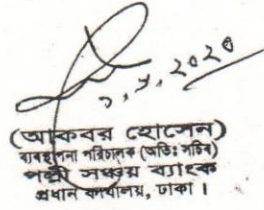 ২, ১, ২০২০
(আকবর হোসেন)
ব্যবস্থাপনা পরিচালক (অতিঃ সচিব)
পল্লী সঞ্চয় ব্যাংক
প্রধান কার্যালয়, ঢাকা।